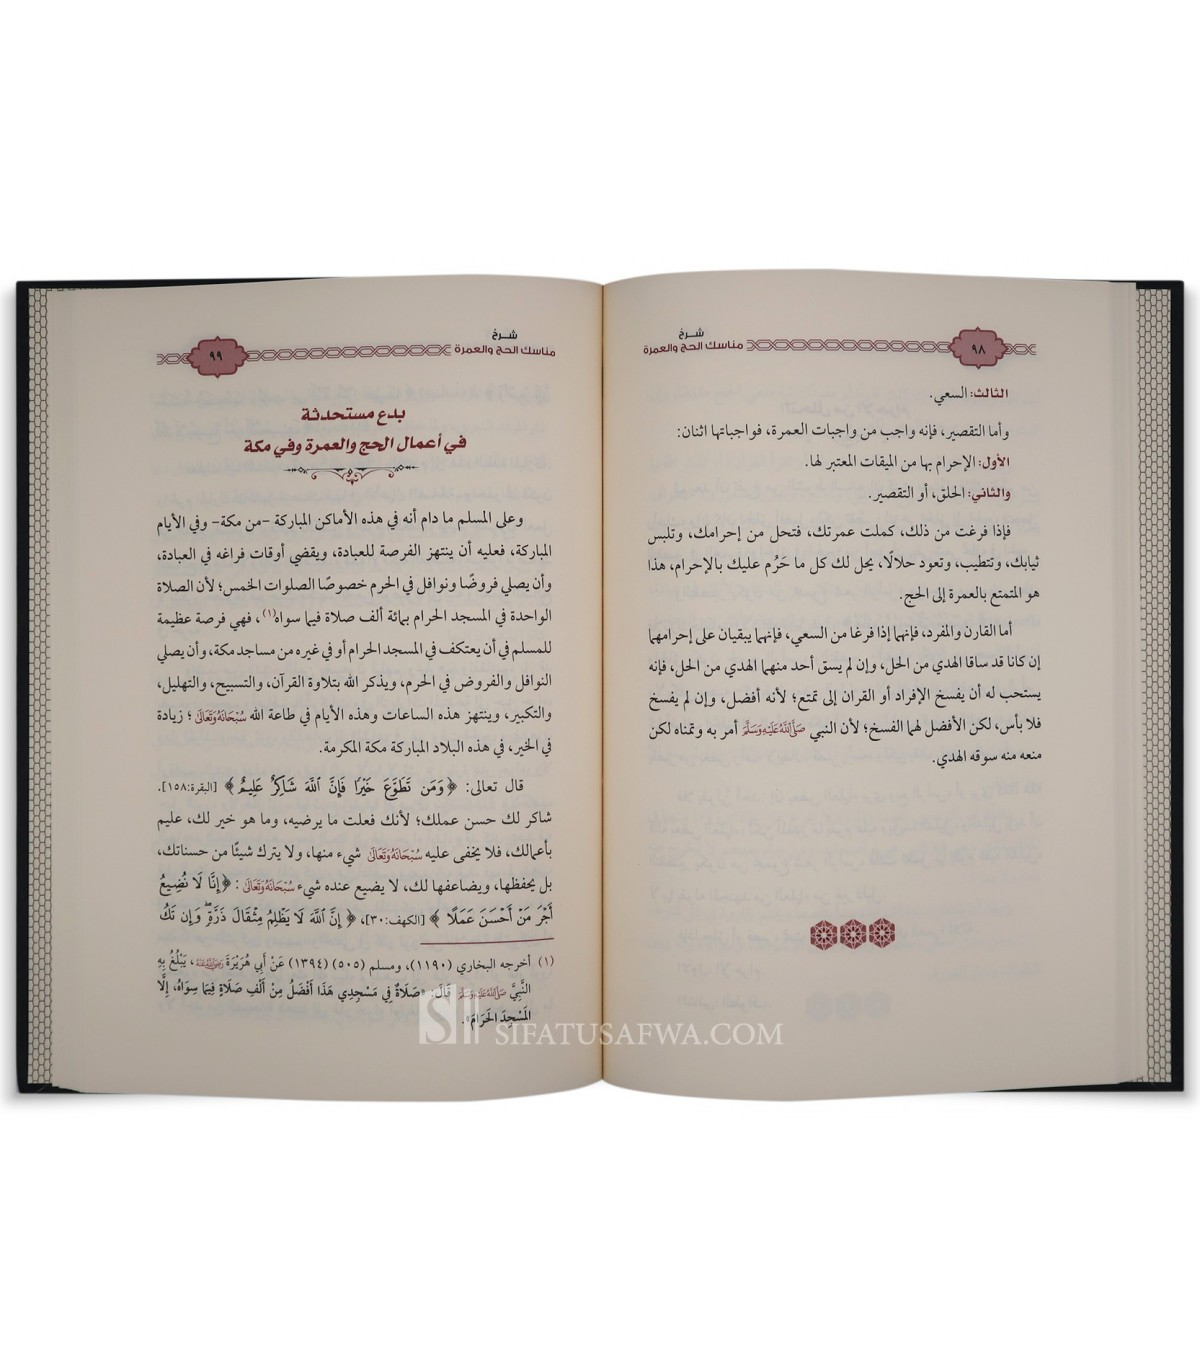 شرح
مناسك الحج والعمرة
٩٨
الثالث: السعي.
وأما التقصير، فإنه واجب من واجبات العمرة، فواجباتها اثنان:
الأول: الإحرام بها من الميقات المعتبر لها.
والثاني: الحلق، أو التقصير.
فإذا فرغت من ذلك، كملت عمرتك، فتحل من إحرامك، وتلبس
ثيابك، وتتطيب، وتعود حلالًا، يحل لك كل ما حَرُم عليك بالإحرام، هذا
هو المتمتع بالعمرة إلى الحج.
أما القارن والمفرد، فإنهما إذا فرغا من السعي، فإنهما يبقيان على إحرامهما
إن كانا قد ساقا الهدي من الحل، وإن لم يسق أحد منهما الهدي من الحل، فإنه
يستحب له أن يفسخ الإفراد أو القران إلى تمتع؛ لأنه أفضل، وإن لم يفسخ
فلا بأس، لكن الأفضل لهما الفسخ؛ لأن النبي صَلَّى اللَّهُ عَلَيْهِ وَسَلَّمَ أمر به وتمناه لكن
منعه منه سوقه الهدي.
شرح
مناسك الحج والعمرة
٩٩
بدع مستحدثة
في أعمال الحج والعمرة وفي مكة
وعلى المسلم ما دام أنه في هذه الأماكن المباركة -من مكة- وفي الأيام
المباركة، فعليه أن ينتهز الفرصة للعبادة، ويقضي أوقات فراغه في العبادة،
وأن يصلي فروضًا ونوافل في الحرم خصوصًا الصلوات الخمس؛ لأن الصلاة
الواحدة في المسجد الحرام بمائة ألف صلاة فيما سواه(١)، فهي فرصة عظيمة
للمسلم في أن يعتكف في المسجد الحرام أو في غيره من مساجد مكة، وأن يصلي
النوافل والفروض في الحرم، ويذكر الله بتلاوة القرآن، والتسبيح، والتهليل،
والتكبير، وينتهز هذه الساعات وهذه الأيام في طاعة الله سُبْحَانَهُ وَتَعَالَى؛ زيادة
في الخير، في هذه البلاد المباركة مكة المكرمة.
قال تعالى: ﴿وَمَن تَطَوَّعَ خَيْرًا فَإِنَّ ٱللَّهَ شَاكِرٌ عَلِيمٌ﴾ [البقرة:١٥٨].
شاكر لك حسن عملك؛ لأنك فعلت ما يرضيه، وما هو خير لك، عليم
بأعمالك، فلا يخفى عليه سُبْحَانَهُ وَتَعَالَى شيء منها، ولا يترك شيئًا من حسناتك،
بل يحفظها، ويضاعفها لك، لا يضيع عنده شيء سُبْحَانَهُ وَتَعَالَى: ﴿إِنَّا لَا نُضِيعُ
أَجْرَ مَنْ أَحْسَنَ عَمَلًا﴾ [الكهف:٣٠]، ﴿إِنَّ ٱللَّهَ لَا يَظْلِمُ مِثْقَالَ ذَرَّةٍ ۖ وَإِن تَكُ
(١) أخرجه البخاري (١١٩٠)، ومسلم (٥٠٥) (١٣٩٤) عَنْ أَبِي هُرَيْرَةَ رَضِيَ اللَّهُ عَنْهُ، يَبْلُغُ بِهِ
النَّبِيَّ صَلَّى اللَّهُ عَلَيْهِ وَسَلَّمَ قَالَ: «صَلَاةٌ فِي مَسْجِدِي هَذَا أَفْضَلُ مِنْ أَلْفِ صَلَاةٍ فِيمَا سِوَاهُ، إِلَّا
المَسْجِدَ الحَرَامَ».
SIFATUSAFWA.COM